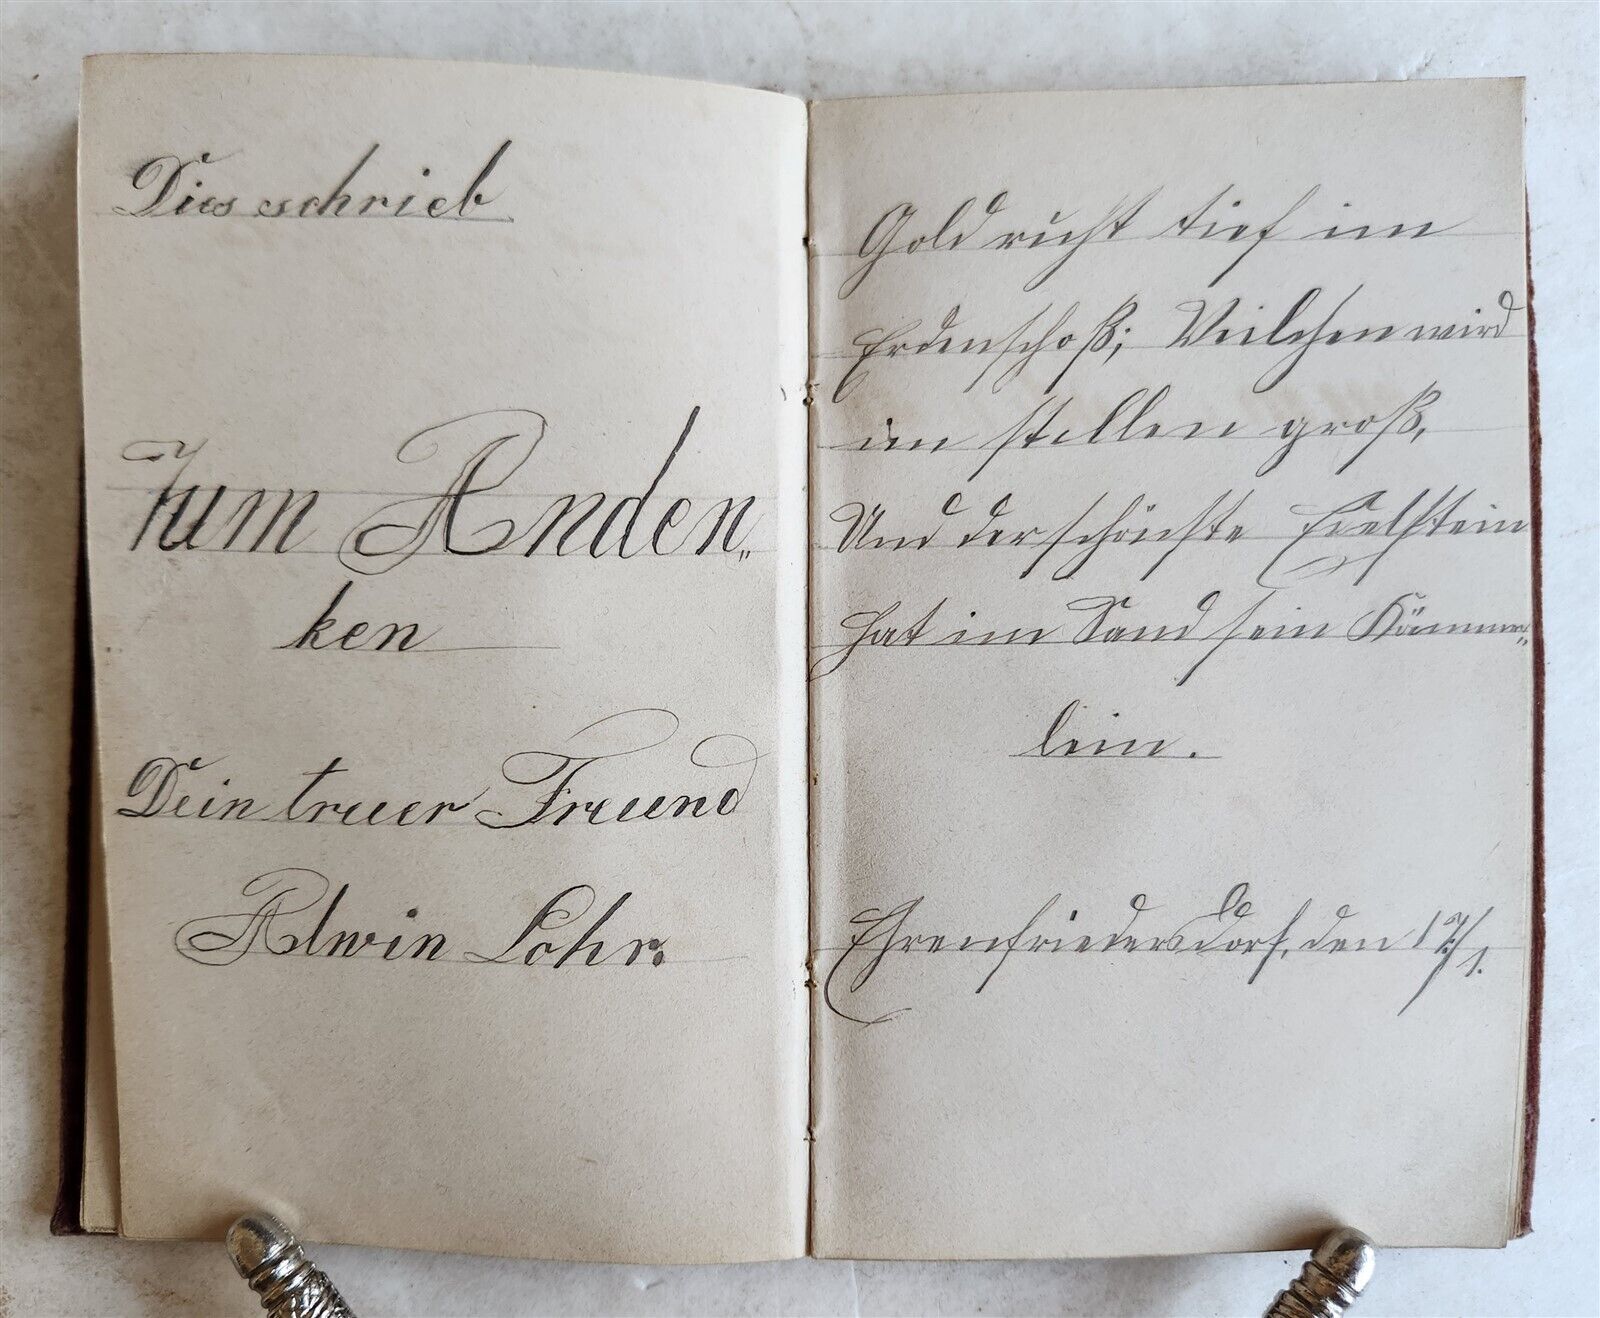 Dies schrieb
Zum Anden„
ken
Dein treuer Freund
Alwin Lohr.
Gold ruht tief im
Erdenschoß; Veilchen wird
im stillen groß,
Und der schönste Edelstein
hat im Sand sein Kämmer„
lein.
Ehrenfriedersdorf, den 17/1.